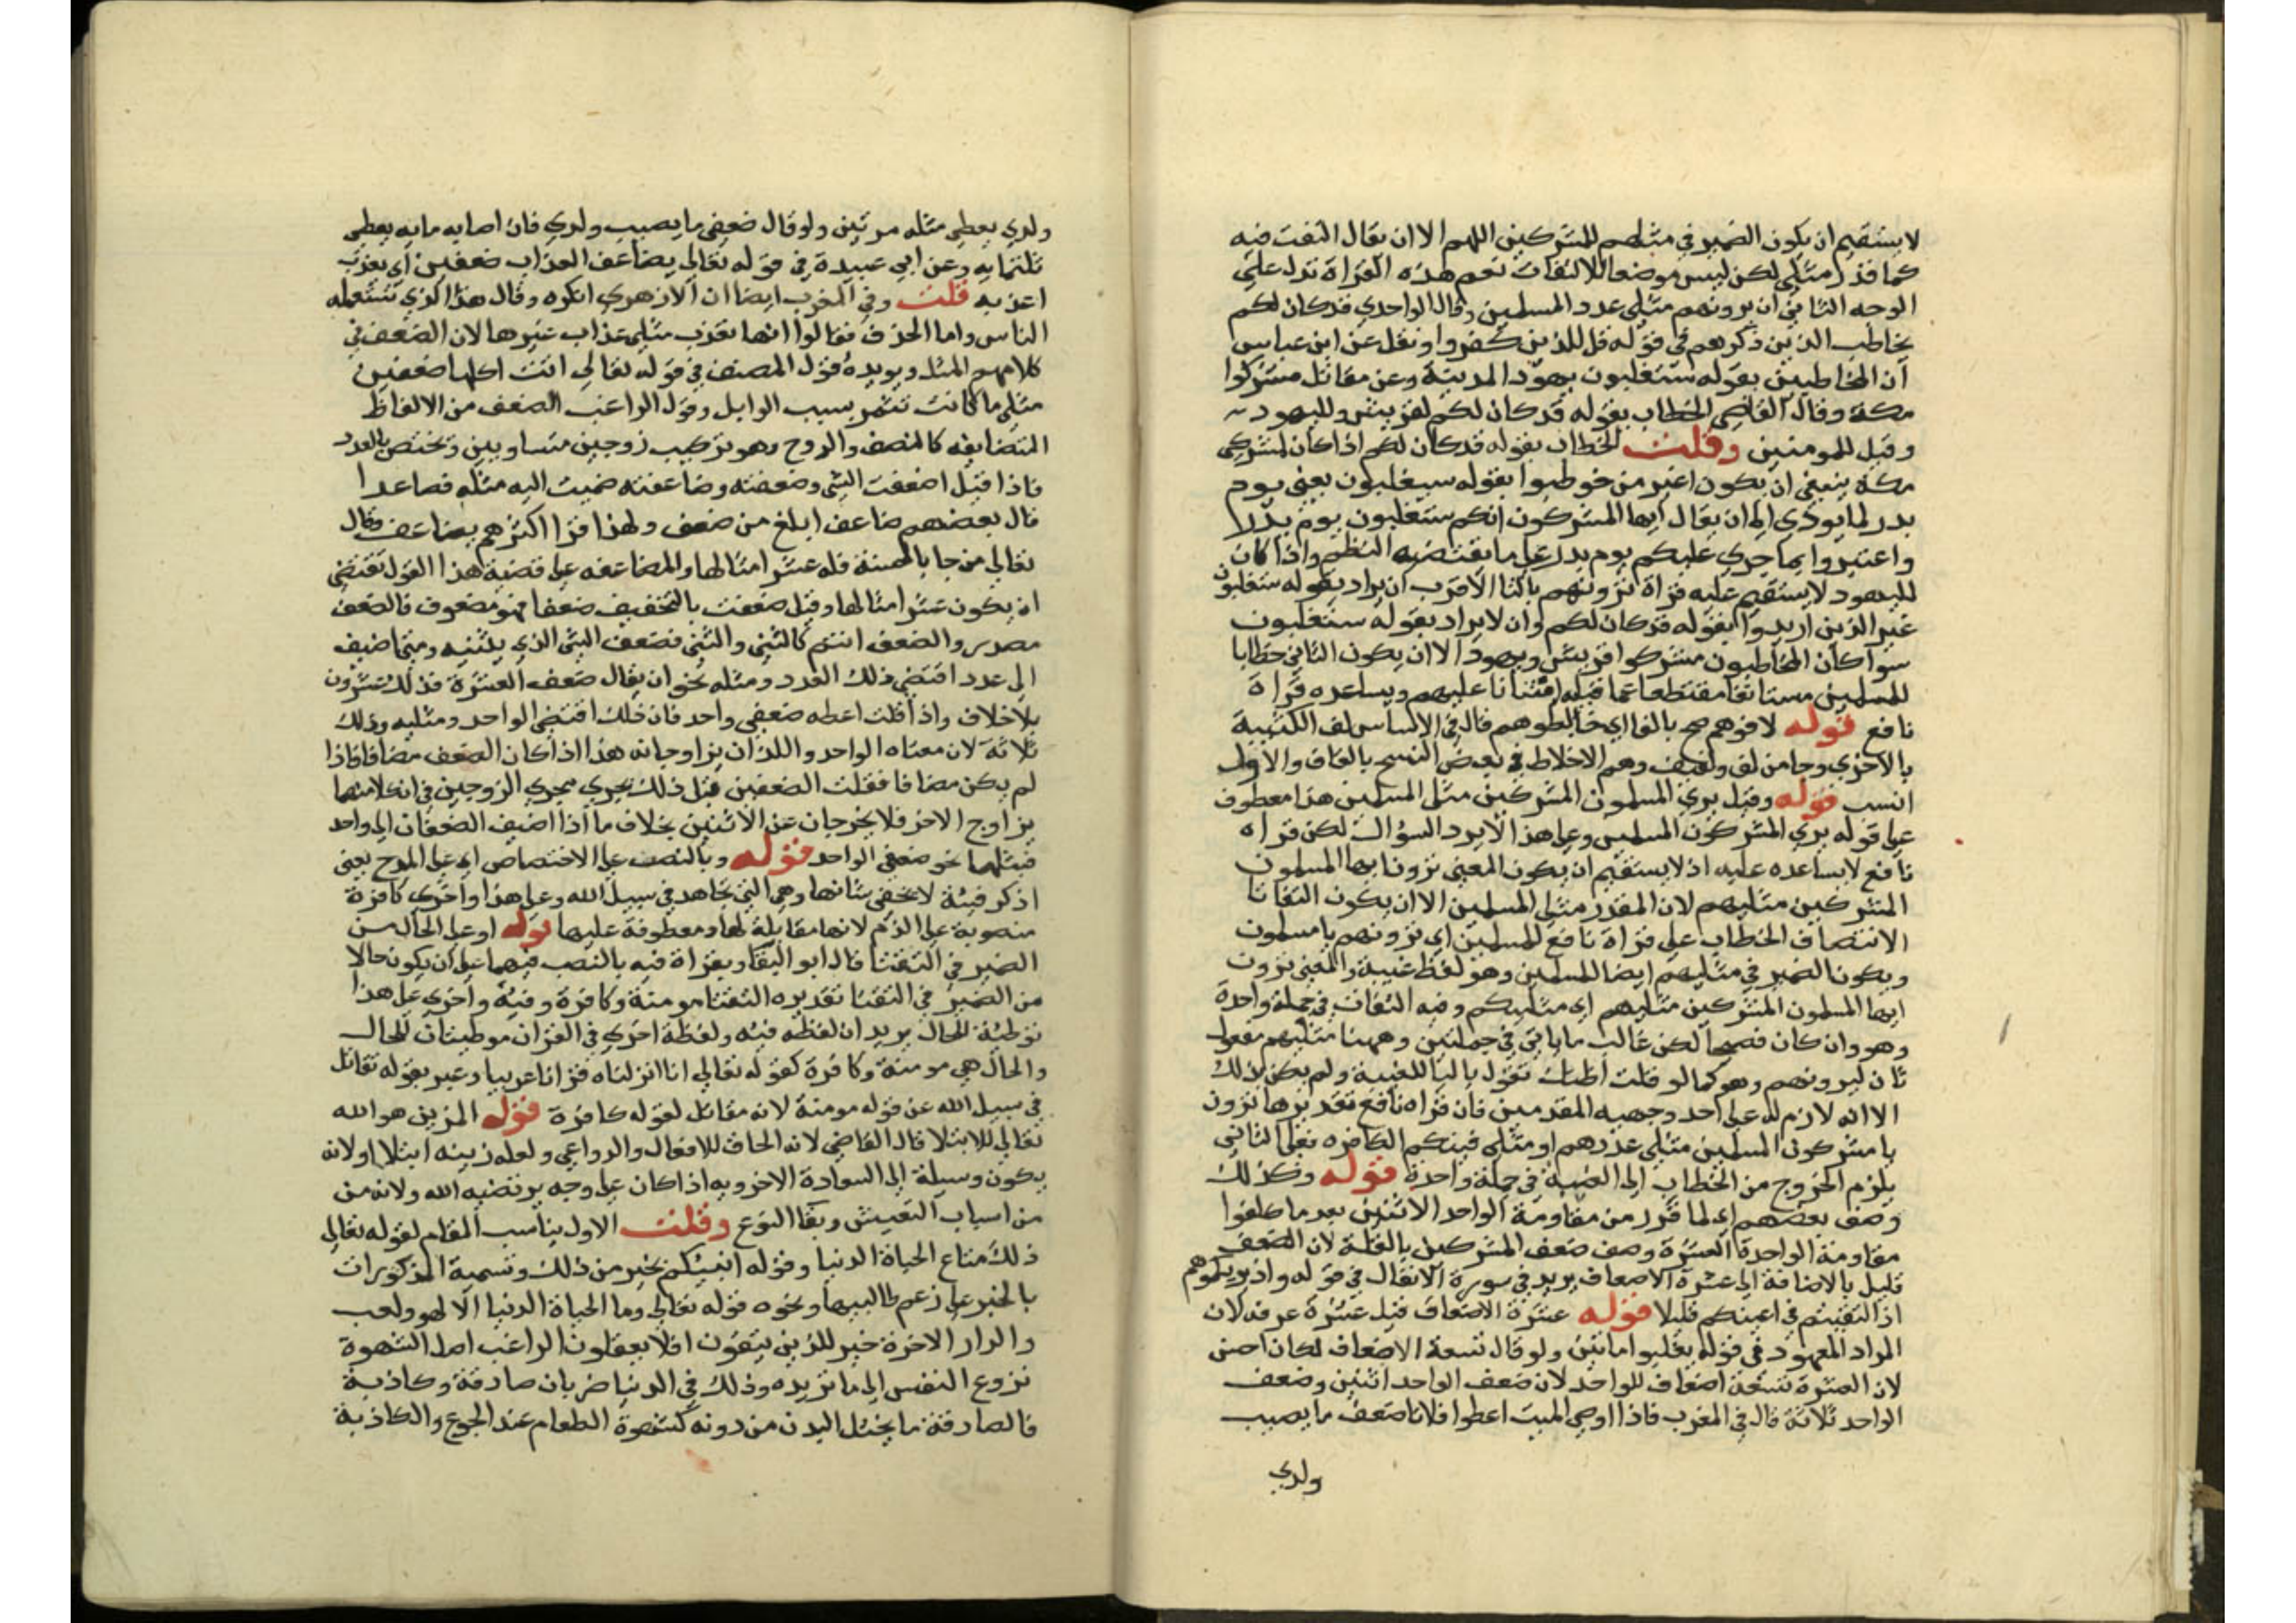 لا يستقيم ان يكون الضمير في مثلهم للمشركين اللهم الا ان يقال التفت فيه
كما قدر مثلي لكن ليس موضعا للالتفات نعم هذه القراة تدل على
الوجه الثاني ان يرونهم مثلي عدد المسلمين وقال الواحدي قد كان لكم
يخاطب الذين ذكرهم في قوله قل للذين كفروا ونقل عن ابن عباس
ان المخاطبين بقوله ستغلبون يهود المدينة وعن مقاتل مشركوا
مكة وقال القاضي الخطاب بقوله قد كان لكم لقريش وللیهود
وقيل للمومنين وقلت الخطاب بقوله قد كان لكم اذا كان لمشركي
مكة ينبغي ان يكون اغير من خوطبوا بقوله سيغلبون يعني يوم
بدر لما يودي الى ان يقال ايها المشركون انكم ستغلبون يوم بدر
واعتبروا بما جري عليكم يوم بدر على ما يقتضيه النظم واذا كان
لليهود لا يستقيم عليه قراة ترونهم بالتا الاقرب ان يراد بقوله ستغلبون
غير الذين اريدوا بقوله قد كان لكم وان لا يراد بقوله ستغلبون
سوا كان المخاطبون مشركوا قريش ويهود الا ان يكون الثاني خطابا
للمسلمين مستانفا مقتطعا عما قبله امتنانا عليهم ويساعده قراة
نافع قوله لافوهم هم بالفا اي خالطوهم قال في الاساس لف الكتيبة
بالاخري وجا من لف ولفيف وهم الاخلاط في بعض النسخ بالقاف والاول
انسب قوله وقيل يري المسلمون المشركين مثلي المسلمين هذا معطوف
على قوله يري المشركون المسلمين وعلى هذا لا يرد السؤال لكن قراة
نافع لا يساعده عليه اذ لا يستقيم ان يكون المعنى ترون ايها المسلمون
المشركين مثليهم لان المقدر مثلي المسلمين الا ان يكون التفاتا
الانتصاف الخطاب على قراة نافع للمسلمين اي ترونهم يا مسلمون
ويكون الضمير في مثليهم ايضا للمسلمين وهو لفظ غيبة والمعنى ترون
ايها المسلمون المشركين مثليهم اي مثليكم وفيه التفات في جملة واحدة
وهو وان كان فصيحا لكن غالب ما ياتي في جملتين وههنا مثليهم مفعول
ثان ليرونهم وهو كما لو قلت اظنك تقول باليا للغيبة ولم يكن بذلك
الا انه لازم له على احد وجهيه المقدمين فان قراه نافع تقديرها ترون
يا مشركون المسلمين مثلي عددهم او مثلي فيتكم الكافره فعلى الثاني
يلزم الخروج من الخطاب الى الغيبة في جملة واحدة قوله وكذلك
وصف بعضهم اي لما قرر من مقاومة الواحد الاثنين بعد ما كلفوا
مقاومة الواحدة العشرة وصف ضعف المشركين بالقلة لان الضعف
قليل بالاضافة الى عشرة الاضعاف يريد في سورة الانفال في قوله واذ يريكموهم
اذ التقيتم في اعينكم قليلا قوله عشرة الاضعاف قيل عشرة عرفه لان
المراد المعهود في قوله يغلبوا مائتين ولو قال تسعة الاضعاف لكان احسن
لان العشرة تسعة اضعاف للواحد لان ضعف الواحد اثنين وضعف
الواحد ثلاثة قال في المغرب فاذا اوصي الميت اعطوا فلانا ضعف ما يصيب
ولدي
ولدي يعطي مثله مرتين ولو قال ضعفي ما يصيب ولدي فان اصابه مايه يعطي
ثلثمايه وعن ابي عبيدة في قوله تعالى يضاعف العذاب ضعفين اي يعذب
اعذبه قلت وفي المغرب ايضا ان الازهري انكره وقال هذا الذي تستعمله
الناس واما الحذف فقالوا انها تعذب مثلي عذاب غيرها لان الضعف في
كلامهم المثل ويويده قول المصنف في قوله تعالى اتت اكلها ضعفين
مثلي ما كانت تثمر بسبب الوابل وقول الراغب الضعف من الالفاظ
المتضايفه كالنصف والزوج وهو تركيب زوجين متساويين وتختص بالعدد
فاذا قيل اضعفت الشي وضعفته وضاعفته ضميت اليه مثله فصاعدا
قال بعضهم ضاعف ابلغ من ضعف ولهذا قرا اكثرهم يضاعف وقال
تعالى من جا بالحسنة فله عشر امثالها والمضاعفه على قضية هذا القول تقتضي
ان يكون عشر امثالها وقيل ضعفت بالتخفيف ضعفا فهو مضعوف فالضعف
مصدر والضعف اسم كالثني والثني فضعف الشي الذي يثنيه ومتى اضيف
الى عدد اقتضي ذلك العدد ومثله نحو ان يقال ضعف العشرة فذلك عشرون
بلا خلاف واذا قلت اعطه ضعفي واحد فان ذلك اقتضي الواحد ومثليه وذلك
ثلاثة لان معناه الواحد واللذان يزاوجانه هذا اذا كان الضعف مضافا فاذا
لم يكن مضافا فقلت الضعفين قيل ذلك يجري مجري الزوجين في ان كلا منهما
يزاوج الاخر فلا يخرجان عن الاثنين بخلاف ما اذا اضيف الضعفان الى واحد
فيثلهما نحو ضعفي الواحد قوله وبالنصب على الاختصاص اي على المدح يعني
اذكر فيئة لا يخفي شانها وهي التي تجاهد في سبيل الله وعلى هذا واخري كافرة
منصوبة على الذم لانها مقابلة لها ومعطوفة عليها قوله او على الحال من
الضمير في التقتا قال ابو البقا ويقراة فيه بالنصب فيهما على ان يكونحالا
من الضمير في التقتا تقديره التقتا مومنة وكافرة وفيئة واخري على هذا
توطئة للحال يريد ان لفظه فيئه ولفظة اخري في القران موطيتان للحال
والحال هي مومنة وكافرة كقوله تعالى انا انزلناه قرانا عربيا وعبر بقوله تقاتل
في سبيل الله عن قوله مومنة لانه مقابل لقوله كافرة قوله المزين هو الله
تعالى للابتلا قال القاضي لانه الخالق للافعال والدواعي ولعله زينه ابتلا او لانه
يكون وسيلة الى السعادة الاخرويه اذا كان على وجه يرتضيه الله ولانه من
من اسباب التعيش وبقا النوع وقلت الاول يناسب المقام لقوله تعالى
ذلك متاع الحياة الدنيا وقوله انبيكم بخير من ذلك وتسمية المذكورات
بالخير على زعم طالبيها ونحوه قوله تعالى وما الحياة الدنيا الا لهو ولعب
والدار الاخرة خير للذين يتقون افلا يعقلون الراغب اصل الشهوة
نزوع النفس الى ما تريده وذلك في الدنيا ضربان صادقة وكاذبة
فالصادقة ما يختل البدن من دونه كشهوة الطعام عند الجوع والكاذبة